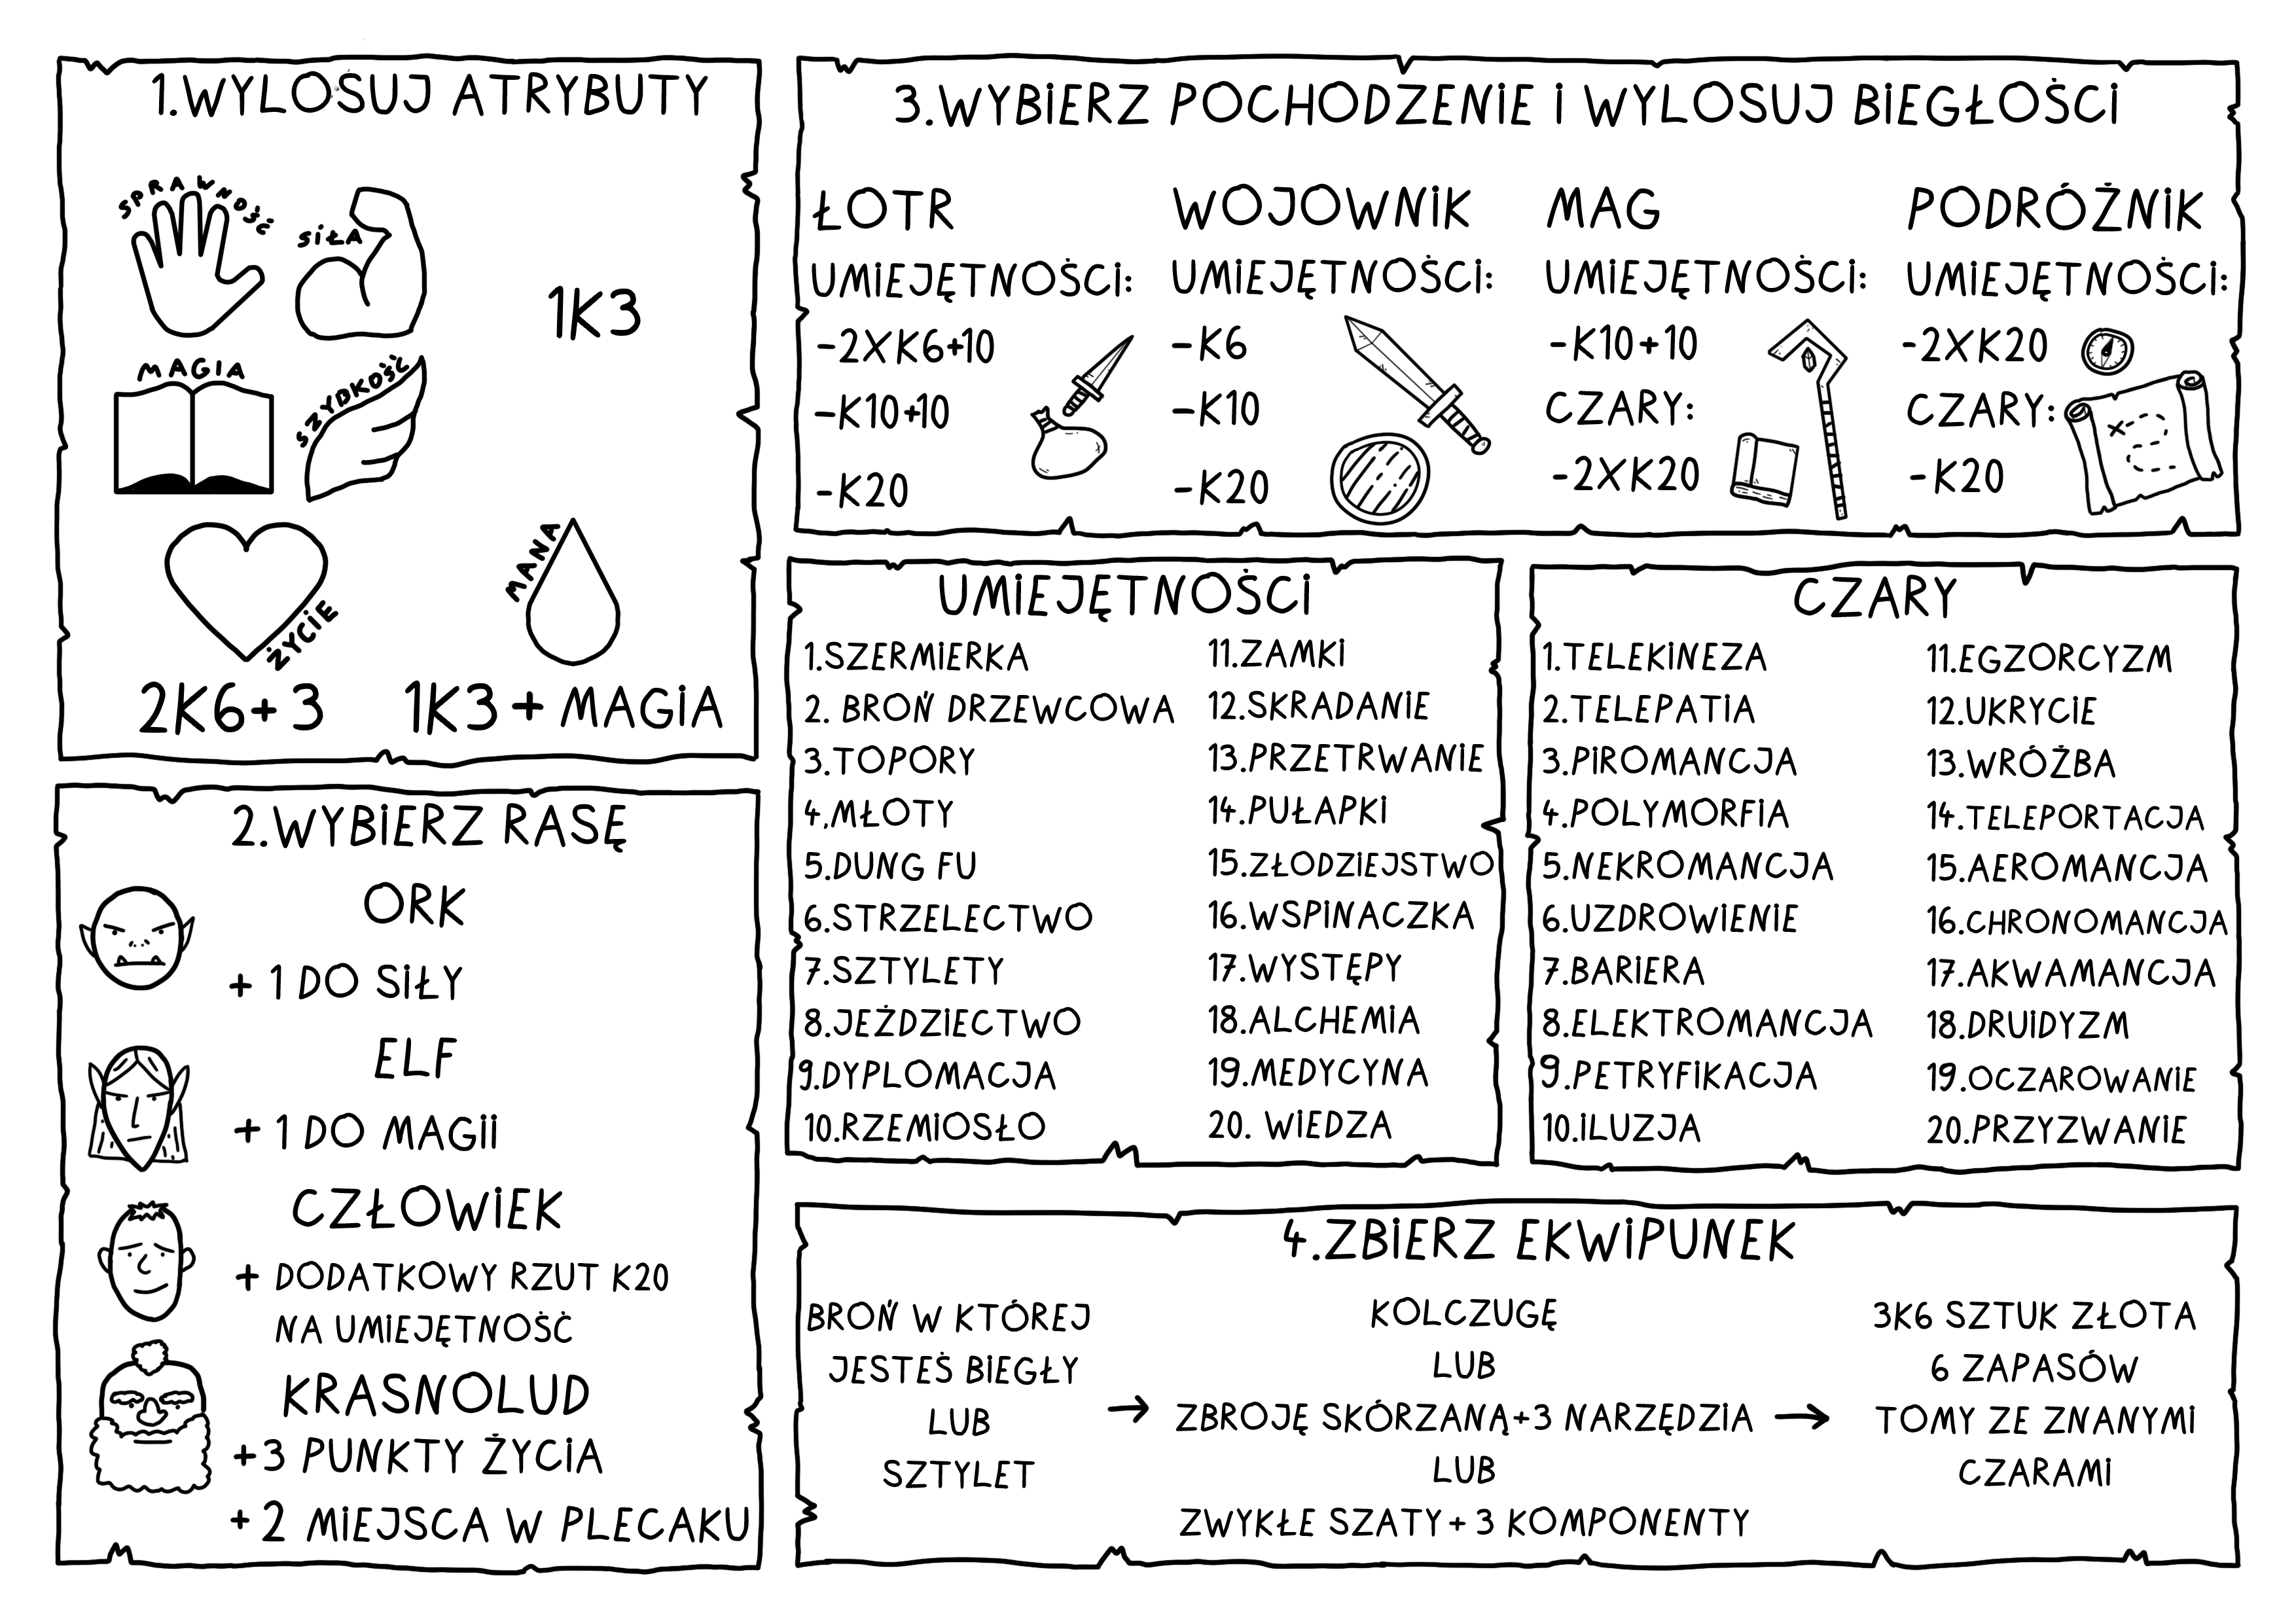 1.WYLOSUJ ATRYBUTY
SPRAWNOŚĆ
SIŁA
1K3
MAGIA
SZYBKOŚĆ
ŻYCIE
MANA
2K6+3
1K3+MAGIA
2.WYBIERZ RASĘ
ORK
+ 1 DO SIŁY
ELF
+ 1 DO MAGII
CZŁOWIEK
+ DODATKOWY RZUT K20
NA UMIEJĘTNOŚĆ
KRASNOLUD
+3 PUNKTY ŻYCIA
+2 MIEJSCA W PLECAKU
3.WYBIERZ POCHODZENIE I WYLOSUJ BIEGŁOŚCI
ŁOTR
UMIEJĘTNOŚCI:
-2XK6+10
-K10+10
-K20
WOJOWNIK
UMIEJĘTNOŚCI:
-K6
-K10
-K20
MAG
UMIEJĘTNOŚCI:
-K10+10
CZARY:
-2XK20
PODRÓŻNIK
UMIEJĘTNOŚCI:
-2XK20
CZARY:
-K20
UMIEJĘTNOŚCI
1.SZERMIERKA
2. BROŃ DRZEWCOWA
3.TOPORY
4.MŁOTY
5.DUNG FU
6.STRZELECTWO
7.SZTYLETY
8.JEŹDZIECTWO
9.DYPLOMACJA
10.RZEMIOSŁO
11.ZAMKI
12.SKRADANIE
13.PRZETRWANIE
14.PUŁAPKI
15.ZŁODZIEJSTWO
16.WSPINACZKA
17.WYSTĘPY
18.ALCHEMIA
19.MEDYCYNA
20. WIEDZA
CZARY
1.TELEKINEZA
2.TELEPATIA
3.PIROMANCJA
4.POLYMORFIA
5.NEKROMANCJA
6.UZDROWIENIE
7.BARIERA
8.ELEKTROMANCJA
9.PETRYFIKACJA
10.ILUZJA
11.EGZORCYZM
12.UKRYCIE
13.WRÓŻBA
14.TELEPORTACJA
15.AEROMANCJA
16.CHRONOMANCJA
17.AKWAMANCJA
18.DRUIDYZM
19.OCZAROWANIE
20.PRZYZWANIE
4.ZBIERZ EKWIPUNEK
BROŃ W KTÓREJ
JESTEŚ BIEGŁY
LUB
SZTYLET
→
KOLCZUGĘ
LUB
ZBROJĘ SKÓRZANĄ+3 NARZĘDZIA
LUB
ZWYKŁE SZATY+3 KOMPONENTY
→
3K6 SZTUK ZŁOTA
6 ZAPASÓW
TOMY ZE ZNANYMI
CZARAMI